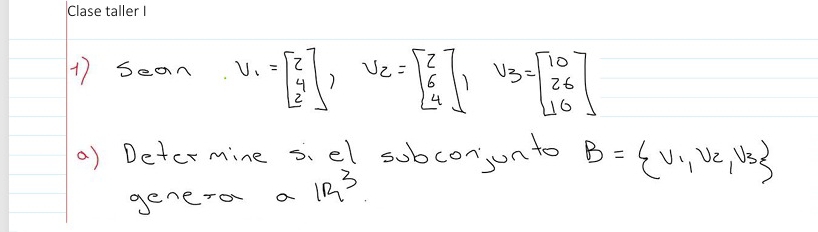 Clase taller I
1) Sean V1 = [2 4 2], V2 = [2 6 4], V3 = [10 26 10]
a) Determine si el subconjunto B = {V1, V2, V3}
genera a IR^3.